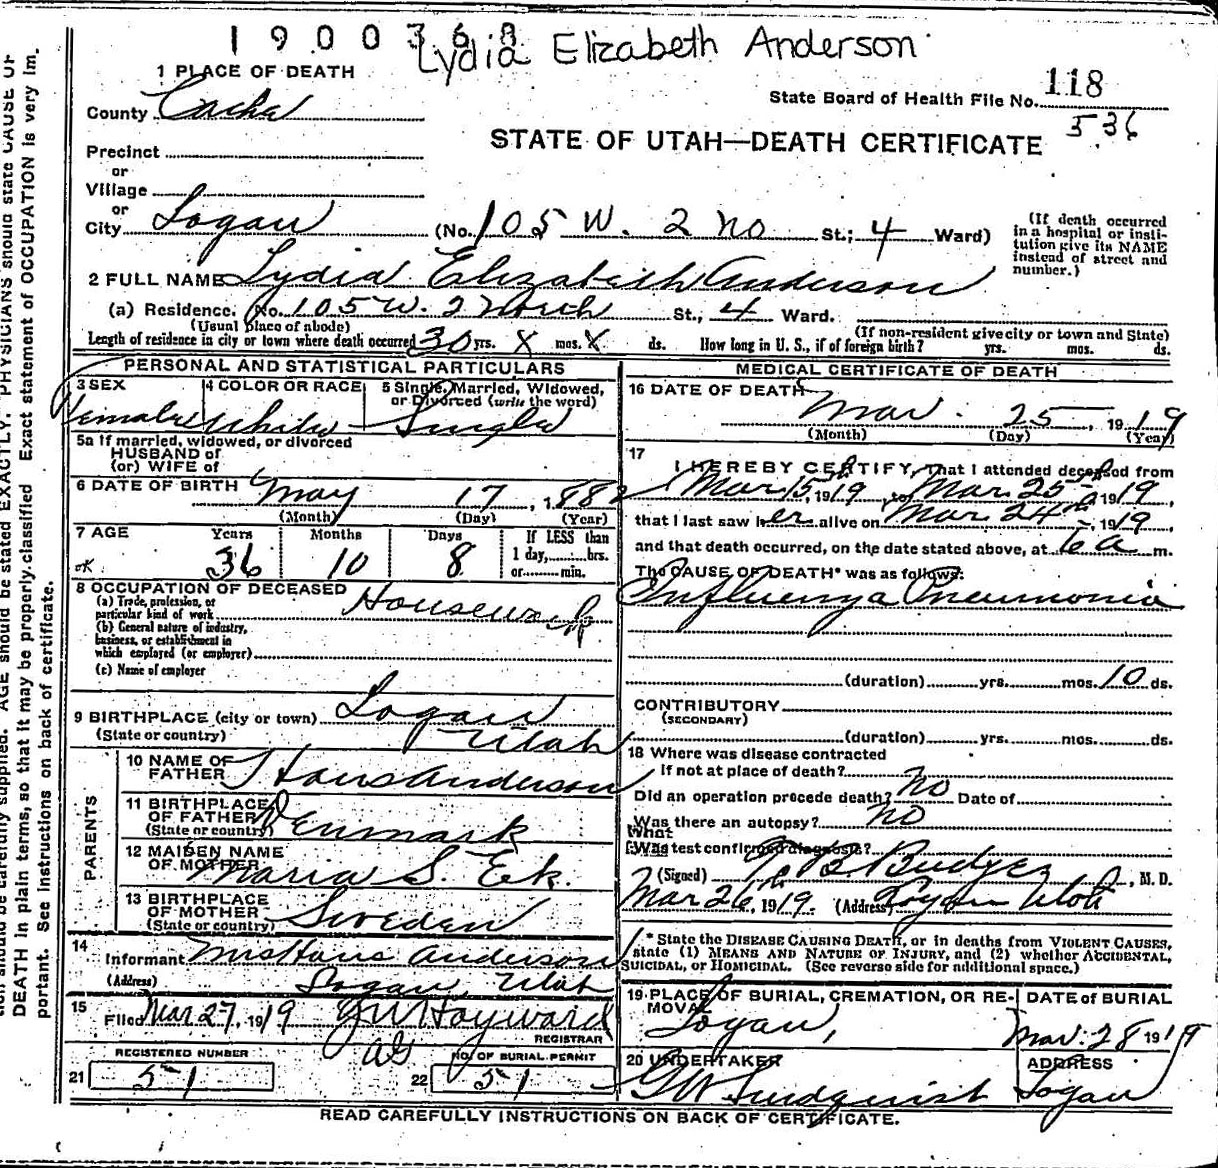 1900368
Lydia Elizabeth Anderson
1 PLACE OF DEATH
State Board of Health File No. 118
536
County Cache
STATE OF UTAH—DEATH CERTIFICATE
Precinct
or
Village
or
City Logan (No. 105 W. 2 No St.; 4 Ward)
(If death occurred in a hospital or institution give its NAME instead of street and number.)
2 FULL NAME Lydia Elizabeth Anderson
(a) Residence. No. 105 W. 2 North St., 4 Ward.
(Usual place of abode) (If non-resident give city or town and State)
Length of residence in city or town where death occurred 30 yrs. X mos. X ds. How long in U. S., if of foreign birth? yrs. mos. ds.
PERSONAL AND STATISTICAL PARTICULARS
3 SEX 4 COLOR OR RACE 5 Single, Married, Widowed,
or Divorced (write the word)
Female White Single
5a If married, widowed, or divorced
HUSBAND of
(or) WIFE of
6 DATE OF BIRTH May 17, 1882
(Month) (Day) (Year)
7 AGE Years Months Days If LESS than
1 day, hrs.
or min.
OK 36 10 8
8 OCCUPATION OF DECEASED
(a) Trade, profession, or
particular kind of work Housework
(b) General nature of industry,
business, or establishment in
which employed (or employer)
(c) Name of employer
9 BIRTHPLACE (city or town) Logan
(State or country) Utah
PARENTS
10 NAME OF
FATHER Hans Anderson
11 BIRTHPLACE
OF FATHER
(State or country) Denmark
12 MAIDEN NAME
OF MOTHER Maria S. Ek.
13 BIRTHPLACE
OF MOTHER
(State or country) Sweden
14
Informant Mrs Hans Anderson
(Address) Logan, Utah
15
Filed Mar 27, 1919 Hayward
REGISTRAR
REGISTERED NUMBER NO. OF BURIAL PERMIT
21 51 22 51
MEDICAL CERTIFICATE OF DEATH
16 DATE OF DEATH
Mar. 25, 1919
(Month) (Day) (Year)
17
I HEREBY CERTIFY, That I attended deceased from
Mar 15, 1919, to Mar. 25, 1919,
that I last saw her alive on Mar. 24th, 1919,
and that death occurred, on the date stated above, at 6 a m.
The CAUSE OF DEATH* was as follows:
Influenza Pneumonia
(duration) yrs. mos. 10 ds.
CONTRIBUTORY
(SECONDARY)
(duration) yrs. mos. ds.
18 Where was disease contracted
if not at place of death?
Did an operation precede death? No Date of
Was there an autopsy? No
What
Was test confirmed diagnosis?
(Signed) B. Budge, M. D.
Mar 26, 1919. (Address) Logan Utah
* State the DISEASE CAUSING DEATH, or in deaths from VIOLENT CAUSES,
state (1) MEANS AND NATURE OF INJURY, and (2) whether ACCIDENTAL,
SUICIDAL, or HOMICIDAL. (See reverse side for additional space.)
19 PLACE OF BURIAL, CREMATION, OR RE-
MOVAL DATE of BURIAL
Logan, Mar. 28 1919
20 UNDERTAKER ADDRESS
Lundquist Logan
READ CAREFULLY INSTRUCTIONS ON BACK OF CERTIFICATE.
supplied. AGE should be stated EXACTLY. PHYSICIANS should state CAUSE OF
DEATH in plain terms, so that it may be properly classified. Exact statement of OCCUPATION is very im-
portant. See instructions on back of certificate.